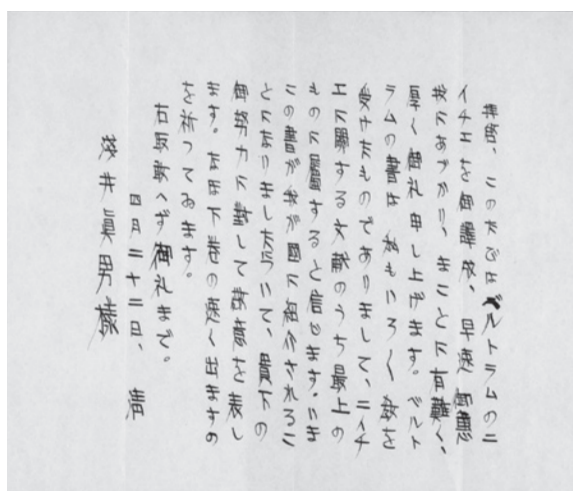 拝啓、このたびはベルトラムのニ
イチエを御譯成、早速御惠
投にあづかり、まことに有難く、
厚く御礼申し上げます。ベルト
ラムの書は私もいろ〱教を
受けたものでありまして、ニイチ
エに關する文献のうち最上の
ものに屬すると信じます、いま
この書が我が國に紹介されるこ
とになりましたについて、貴下の
御努力に對して敬意を表し
ます。なほ下巻の速く出ますの
を祈つてゐます。
右取敢へず御礼まで。
四月二十二日、 清
淺井眞男様